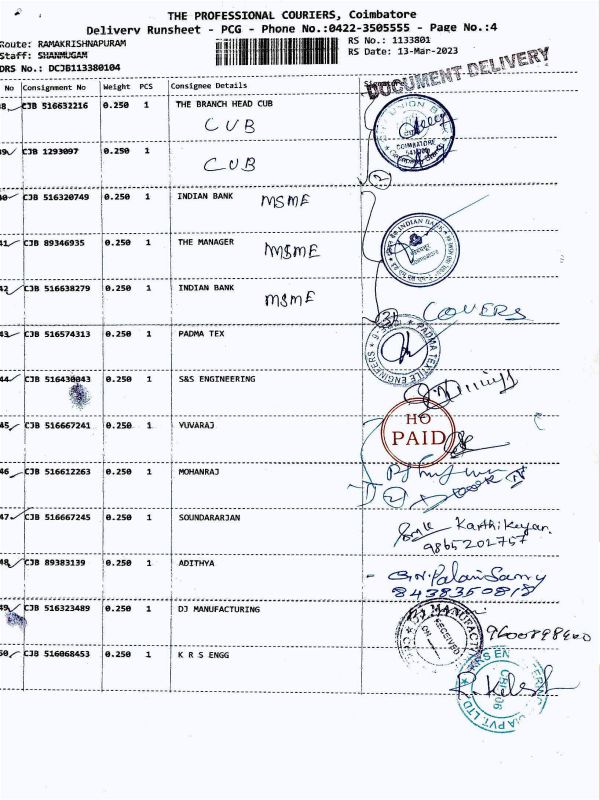 THE PROFESSIONAL COURIERS, Coimbatore
Delivery Runsheet - PCG - Phone No.:0422-3505555 - Page No.:4
Route: RAMAKRISHNAPURAM
RS No.: 1133801
Staff: SHANMUGAM
RS Date: 13-Mar-2023
DRS No.: DCJB113380104
DOCUMENT DELIVERY
No Consignment No Weight PCS Consignee Details
8 CJB 516632216 0.250 1 THE BRANCH HEAD CUB
CUB
UNION BANK
COIMBATORE
39 CJB 1293097 0.250 1
CUB
2
40 CJB 516320749 0.250 1 INDIAN BANK MSME
INDIAN BANK
41 CJB 89346935 0.250 1 THE MANAGER MSME
42 CJB 516638279 0.250 1 INDIAN BANK MSME
3 COVERS
43 CJB 516574313 0.250 1 PADMA TEX
PADMA TEXTILE ENGINEERS
44 CJB 516430043 0.250 1 S&S ENGINEERING
45 CJB 516667241 0.250 1 YUVARAJ
HO
PAID
46 CJB 516612263 0.250 1 MOHANRAJ
2
47 CJB 516667245 0.250 1 SOUNDARARJAN
Karthikeyan.
9865201757
48 CJB 89383139 0.250 1 ADITHYA
- G.N.PalaniSamy
8438350818
49 CJB 516323489 0.250 1 DJ MANUFACTURING
RECEIVED
ON
50 CJB 516068453 0.250 1 K R S ENGG